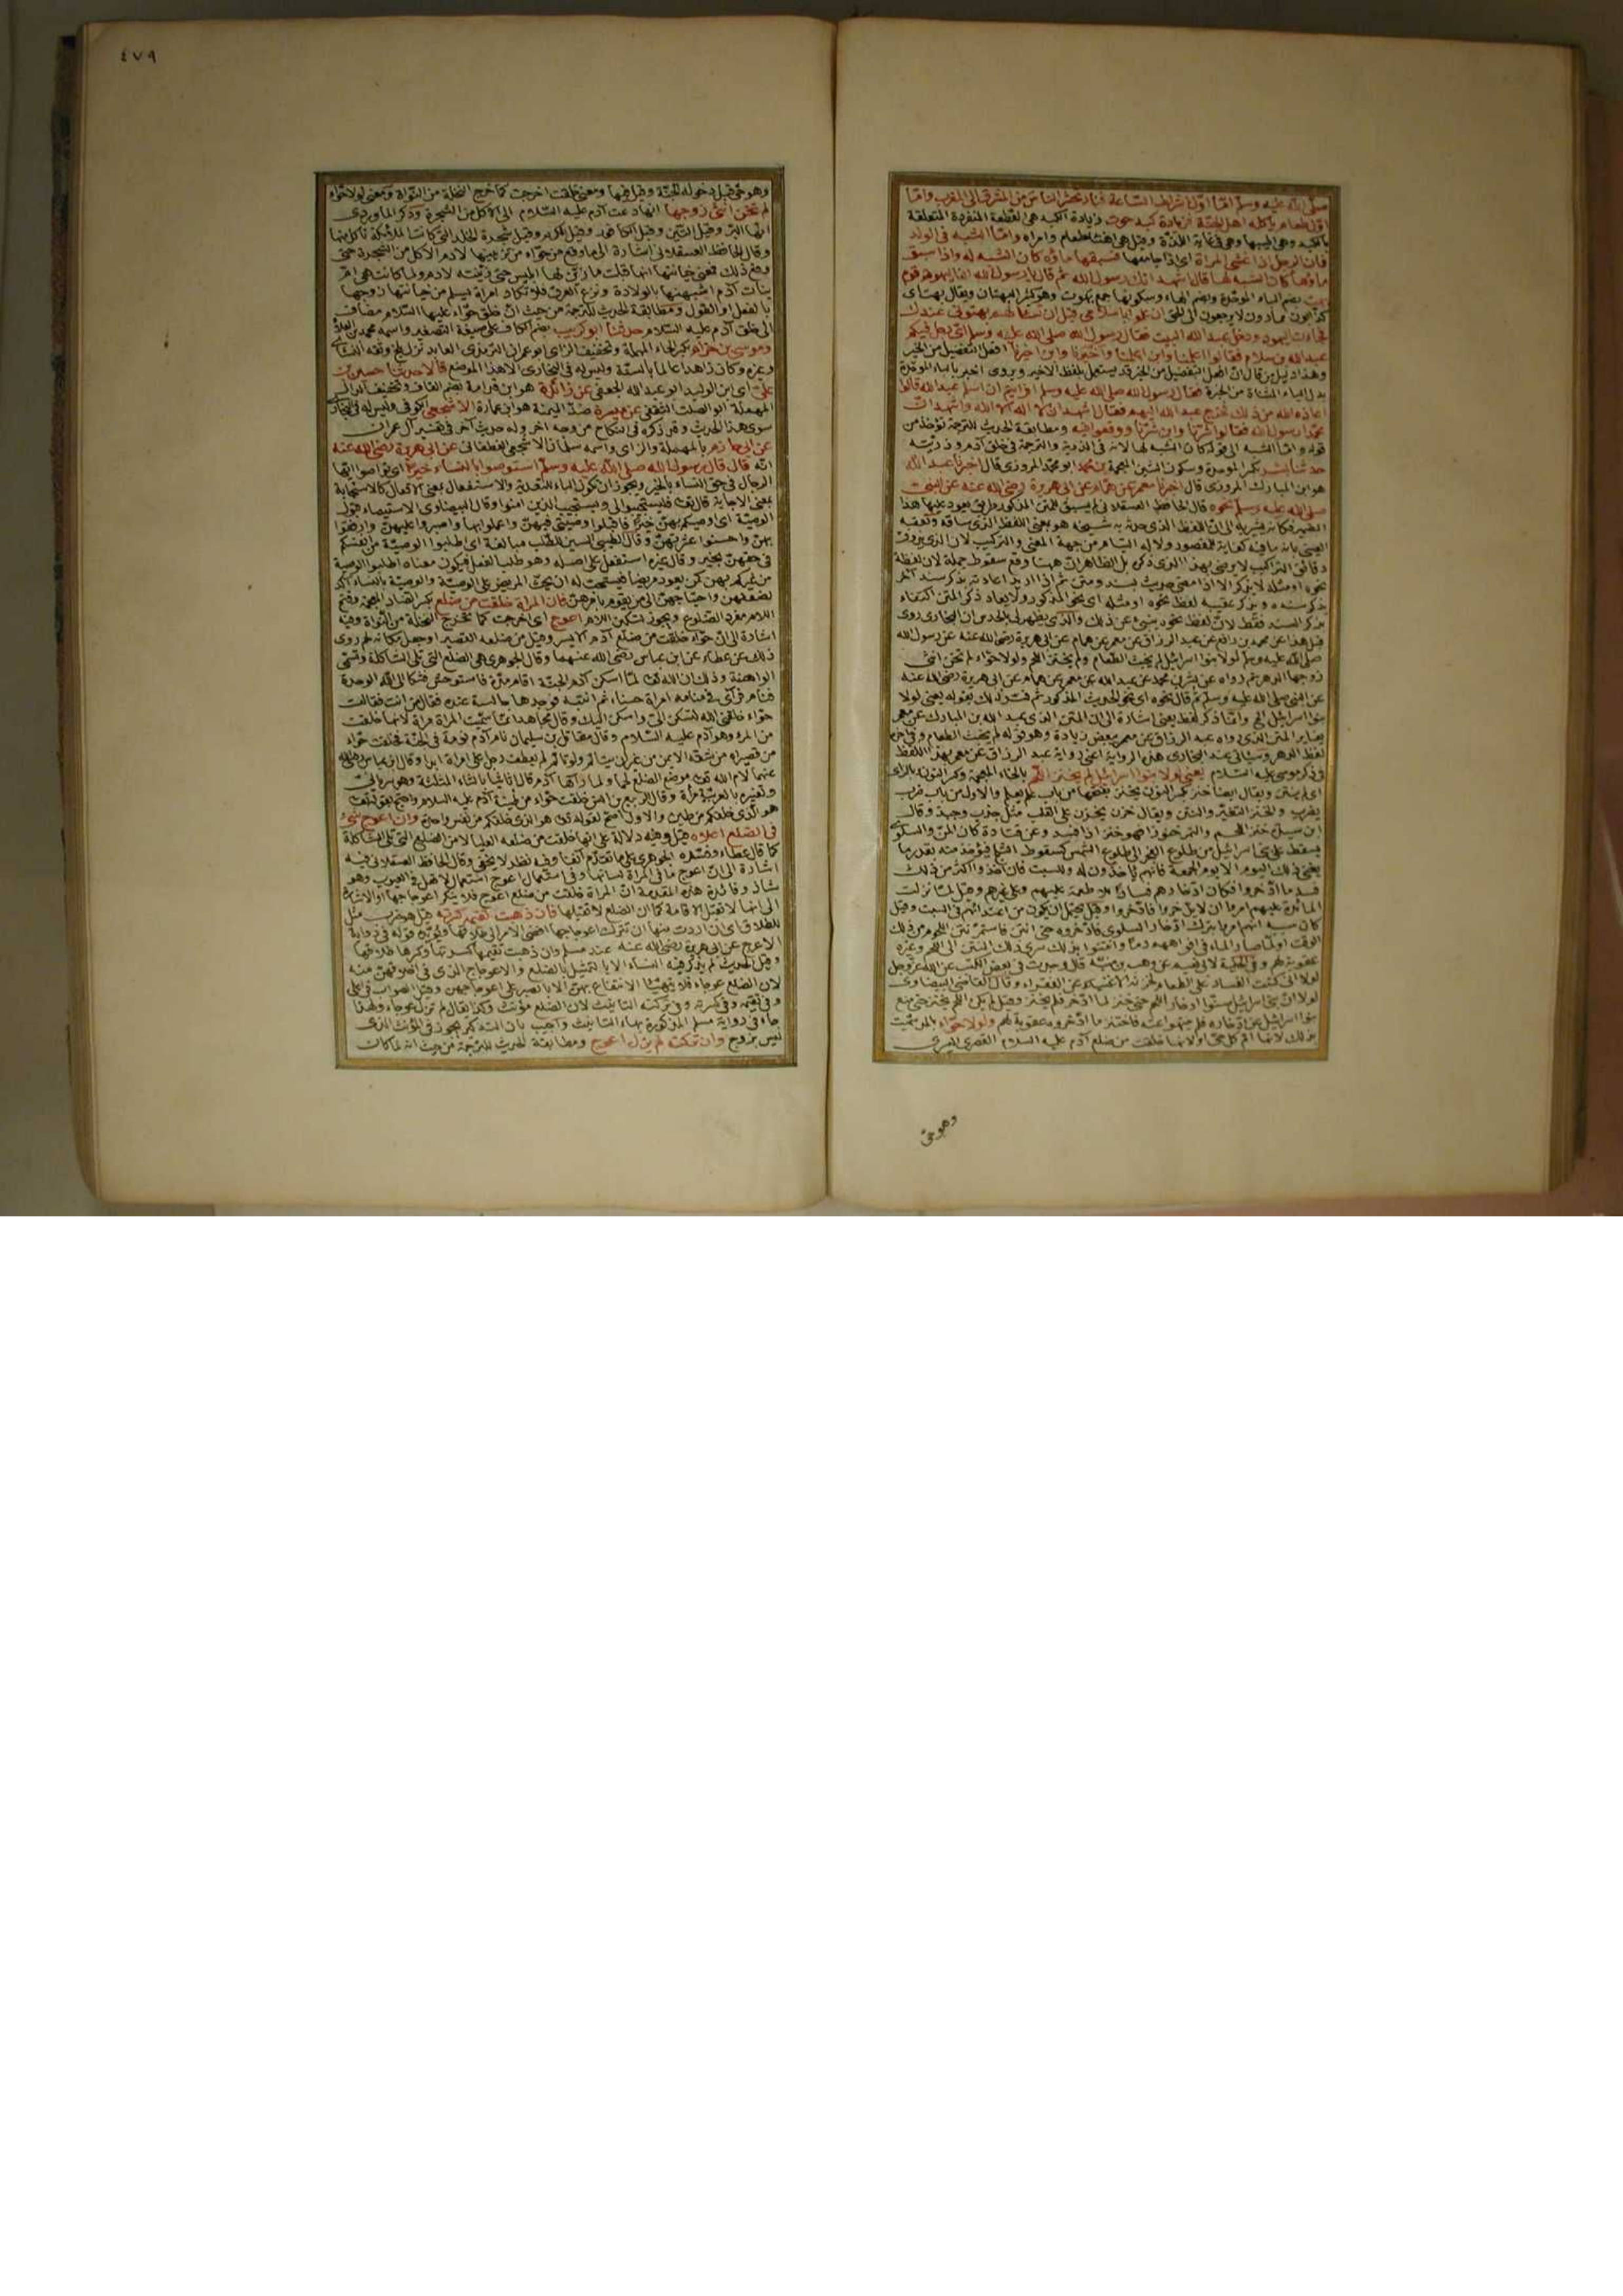 صلى الله عليه وسلم اما اول اشراط الساعة فنار تحشر الناس من المشرق الى المغرب واما
اول طعام يأكله اهل الجنة فزيادة كبد حوت زيادة الكبد هي القطعة المنفردة المتعلقة
بالكبد وهي اطيبها وهي في غاية اللذة وقيل هي اهنأ طعام وامراه واما الشبه في الولد
فان الرجل اذا غشى المرأة اى اذا جامعها فسبقها ماؤه كان الشبه له واذا سبق
ماؤها كان الشبه لها قال اشهد انك رسول الله ثم قال يا رسول الله ان اليهود قوم
بهت بضم الباء الموحدة وبضم الهاء وسكونها جمع بهوت وهو كثير البهتان ويقال بهت اى
كذابون لا يرجعون الى الحق ان علموا باسلامي قبل ان تسألهم بهتوني عندك
فجاءت اليهود ودخل عبد الله البيت فقال رسول الله صلى الله عليه وسلم اى رجل فيكم
عبد الله بن سلام فقالوا اعلمنا وابن اعلمنا واخيرنا وابن اخيرنا افعل التفضيل من الخير
وهذا دليل من قال ان افعل التفضيل من الخير قد يستعمل بلفظ الاخير ويروى اخبر بالباء الموحدة
بدل الياء المثناة من الخبرة فقال رسول الله صلى الله عليه وسلم افرايتم ان اسلم عبد الله قالوا
اعاذه الله من ذلك فخرج عبد الله اليهم فقال اشهد ان لا اله الا الله واشهد ان
محمدا رسول الله فقالوا شرنا وابن شرنا ووقعوا فيه ومطابقة الحديث للترجمة تؤخذ من
قوله واما الشبه الى قوله كان الشبه لها لانه في الذرية والترجمة في خلق آدم وذريته
حدثنا بشر بكسر الموحدة وسكون الشين المعجمة بن محمد ابو محمد المروزى قال اخبرنا عبد الله
هو ابن المبارك المروزى قال اخبرنا معمر عن همام عن ابى هريرة رضى الله عنه عن النبي
صلى الله عليه وسلم نحوه قال الحافظ العسقلاني لم يسبق للمتن المذكور طريق يعود عليها هذا
الضمير فكانه يشير به الى ان اللفظ الذى حدثه به شيخه هو بمعنى اللفظ الذى ساقه وتعقبه
العيني بانه ما فيه كفاية للمقصود من جهة المعنى والتركيب لان الذى يعرف
دقائق التراكيب لا يرضى بهذا الذى ذكره بل الظاهر ان ههنا وقع سقوط جملة لان لفظة
نحوه او مثله لا يذكر الا اذا مضى حديث بسند ومتن ثم اذا اريد اعادته بذكر سند آخر
يذكر سنده ويذكر عقيبه لفظ نحوه او مثله اى نحو المذكور ولا يعاد ذكر المتن اكتفاء
بذكر السند فقط لان لفظ نحوه ينبئ عن ذلك والذى يظهر لى ان البخارى روى
قبل هذا عن محمد بن رافع عن عبد الرزاق عن معمر عن همام عن ابى هريرة رضى الله عنه عن رسول الله
صلى الله عليه وسلم لولا بنوا اسرائيل لم يخبث الطعام ولم يخنز اللحم ولولا حواء لم تخن انثى
زوجها الدهر ثم رواه عن بشر بن محمد عن عبد الله عن معمر عن همام عن ابى هريرة رضى الله عنه
عن النبي صلى الله عليه وسلم ثم قال نحوه اى نحو الحديث المذكور ثم فسر ذلك بقوله يعنى لولا
بنوا اسرائيل الخ وانما ذكر لفظ يعنى اشارة الى ان المتن الذى عبد الله بن المبارك عن معمر
يغاير المتن الذى رواه عبد الرزاق عن معمر ببعض زيادة وهو قوله لم يخبث الطعام وفي آخره
لفظ الدهر وسيأتي عند البخارى هذه الرواية اعنى رواية عبد الرزاق عن معمر بهذا اللفظ
في ذكر موسى عليه السلام يعنى لولا بنوا اسرائيل لم يخنز اللحم بالخاء المعجمة وكسر النون بالزاى
اى لم ينتن ويقال ايضا خنز بكسر النون يخنز بفتحها من باب علم يعلم والاول من باب ضرب
يضرب والخنز التغير والنتن ويقال خزن يخزن على القلب مثل جذب وجبذ وقال
ابن سيدة خنز اللحم والتمر خنوزا فهو خنز اذا فسد وعن قتادة كان المن والسلوى
يسقط على بنى اسرائيل من طلوع الفجر الى طلوع الشمس كسقوط الثلج فيؤخذ منه بقدر ما
يغنى ذلك اليوم الا يوم الجمعة فانهم يأخذون له وللسبت فان اخذوا اكثر من ذلك
فسد ما ادخروا فكان ادخارهم فسادا للاطعمة عليهم وعلى غيرهم وقيل لما نزلت
المائدة عليهم امروا ان لا يدخروا فادخروا وقيل يحتمل ان يكون من اعتدائهم في السبت وقيل
كان سببه انهم امروا بترك ادخار السلوى فادخروه حتى انتن فاستمر نتن اللحوم من ذلك
الوقت او لما صار الماء في افواههم دما وانتنوا بذلك سرى ذلك النتن الى اللحم وغيره
عقوبة لهم وفي الحلية لابى نعيم عن وهب بن منبه قال وجدت في بعض الكتب عن الله عز وجل
لولا انى كتبت الفساد على الطعام لخزنه الاغنياء عن الفقراء وقال القاضي البيضاوى
لولا ان بنى اسرائيل سنوا ادخار اللحم حتى خنز لما ادخر فلم يخنز وقيل لم يكن اللحم يخنز حتى منع
بنوا اسرائيل عن ادخاره فلم ينتهوا عنه فاخنز ما ادخروه عقوبة لهم ولولا حواء بالمد سميت
بذلك لانها ام كل حى او لانها خلقت من ضلع آدم عليه السلام القصرى اليسرى
وهو حى
٤٧٩
وهو حى قبل دخوله الجنة وقيل فيها ومعنى خلقت اخرجت كما تخرج النخلة من النواة ومعنى لولا حواء
لم تخن انثى زوجها انها دعت آدم عليه السلام الى الاكل من الشجرة وذكر الماوردى
انها البر وقيل التين وقيل الكافور وقيل الكرم وقيل شجرة الخلد التى كانت الملائكة تأكل منها
وقال الحافظ العسقلاني اشارة الى ما وقع من حواء من تزيينها لآدم الاكل من الشجرة حتى
وقع ذلك فمعنى خيانتها انها قبلت ما زين لها ابليس حتى زينته لآدم ولما كانت هى ام
بنات آدم اشبهنها بالولادة ونزع العرق فلا تكاد امرأة تسلم من خيانتها زوجها
بالفعل او القول ومطابقة الحديث للترجمة من حيث ان خلق حواء عليها السلام مضاف
الى خلق آدم عليه السلام حدثنا ابو كريب بضم الكاف على صيغة التصغير واسمه محمد بن العلاء
وموسى بن حزام بكسر الحاء المهملة وتخفيف الزاى ابو عمران الترمذى العابد نزل بلخ وثقه النسائى
وغيره وكان زاهدا عالما بالسنة وليس له في البخارى الا هذا الموضع قالا حدثنا حسين بن
على اى ابن الوليد ابو عبد الله الجعفي عن زائدة هو ابن قدامة بضم القاف وتخفيف الدال
المهملة ابو الصلت الثقفي عن ميسرة ضد الميمنة هو ابن عمارة الاشجعى الكوفى وليس له في البخارى
سوى هذا الحديث وقد ذكره في النكاح من وجه آخر وله حديث آخر في تفسير آل عمران
عن ابى حازم بالمهملة والزاى واسمه سلمان الاشجعى الغطفانى عن ابى هريرة رضى الله عنه
انه قال قال رسول الله صلى الله عليه وسلم استوصوا بالنساء خيرا اى تواصوا ايها
الرجال في حق النساء بالخير ويجوز ان تكون الباء للتعدية والاستفعال بمعنى الافعال كالاستجابة
بمعنى الاجابة قال تعالى فليستجيبوا لى ويستجيب الذين آمنوا وقال البيضاوى الاستيصاء قبول
الوصية اى اوصيكم بهن خيرا فاقبلوا وصيتى فيهن واعملوا بها واصبروا عليهن وارفقوا
بهن واحسنوا عشرتهن وقال الطيبى السين للطلب مبالغة اى اطلبوا الوصية من انفسكم
في حقهن بخير وقال غيره استفعل على اصله وهو طلب الفعل فيكون معناه اطلبوا الوصية
من غيركم بهن كمن يعود مريضا فيستحب له ان يحث المريض على الوصية والوصية بالنساء آكد
لضعفهن واحتياجهن الى من يقوم بامرهن فان المرأة خلقت من ضلع بكسر الضاد المعجمة وفتح
اللام مفرد الضلوع ويجوز تسكين اللام اعوج اى اخرجت كما تخرج النخلة من النواة وفيه
اشارة الى ان حواء خلقت من ضلع آدم الايسر وقيل من ضلعه القصير وجعل مكانه لحم روى
ذلك عن عطاء عن ابن عباس رضى الله عنهما وقال الجوهرى هى الضلع التى تلى الشاكلة وتسمى
الواهنة وذلك ان الله تعالى لما اسكن آدم الجنة اقام مدة فاستوحش فشكا الى الله الوحدة
فنام فرأى في منامه امرأة حسناء ثم انتبه فوجدها جالسة عنده فقال من انت فقالت
حواء خلقنى الله لتسكن الى واسكن اليك وقال مجاهد انما سميت المرأة مرأة لانها خلقت
من المرء وهو آدم عليه السلام وقال مقاتل بن سليمان نام آدم نومة في الجنة فخلقت حواء
من قصيراه من شقه الايمن من غير ان يتألم ولو تألم لم يعطف رجل على امرأة ابدا وقال ابن عباس رضى الله
عنهما لأم الله تعالى موضع الضلع لحما ولما رآها آدم قال اثاثا بالثاء المثلثة وهى سريانى
وتفسيره بالعربية مرأة وقال الربيع بن انس خلقت حواء من طينة آدم عليه السلام واحتج بقوله تعالى
هو الذى خلقكم من طين والاول اصح لقوله تعالى هو الذى خلقكم من نفس واحدة وان اعوج شئ
في الضلع اعلاه قيل وفيه دلالة على انها خلقت من ضلعه العليا لا من الضلع التى تلى الشاكلة
كما قال عطاء وفسره الجوهرى على ما تقدم آنفا وفيه نظر لا يخفى وقال الحافظ العسقلاني فيه
اشارة الى ان اعوج ما في المرأة لسانها وفي استعمال اعوج استعمال لافعل في العيوب وهو
شاذ وفائدة هذه المقدمة ان المرأة خلقت من ضلع اعوج فلا ينكر اعوجاجها او الاشارة
الى انها لا تقبل الاقامة كما ان الضلع لا تقبلها فان ذهبت تقيمه كسرته قيل هو ضرب مثل
للطلاق اى ان اردت منها ان تترك اعوجاجها افضى الامر الى طلاقها ويؤيده قوله في رواية
الاعرج عن ابى هريرة رضى الله عنه عند مسلم وان ذهبت تقيمها كسرتها وكسرها طلاقها
وقيل الحديث لم يذكر فيه النساء الا بالتمثيل بالضلع والاعوجاج الذى في اخلاقهن منه
لان الضلع عوجاء فلا يتهيأ الانتفاع بهن الا بالصبر على اعوجاجهن وقيل الصواب في اعلاه
وفي تقيمه وفي كسرته وفي تركته التأنيث لان الضلع مؤنث وكذا يقال لم تزل عوجاء ولهذا
جاء في رواية مسلم المذكورة بهاء التأنيث واجيب بان التذكير يجوز في المؤنث الذى
ليس بزوج وان تركته لم يزل اعوج ومطابقة الحديث للترجمة من حيث انه لما كانت